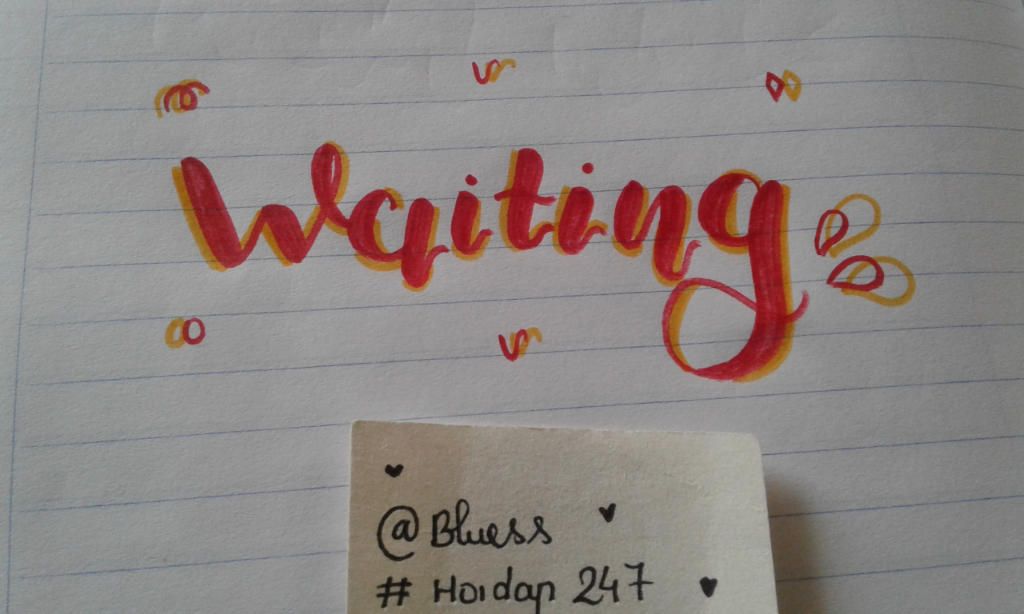 Waiting
@Bluess
# Hoidap 247